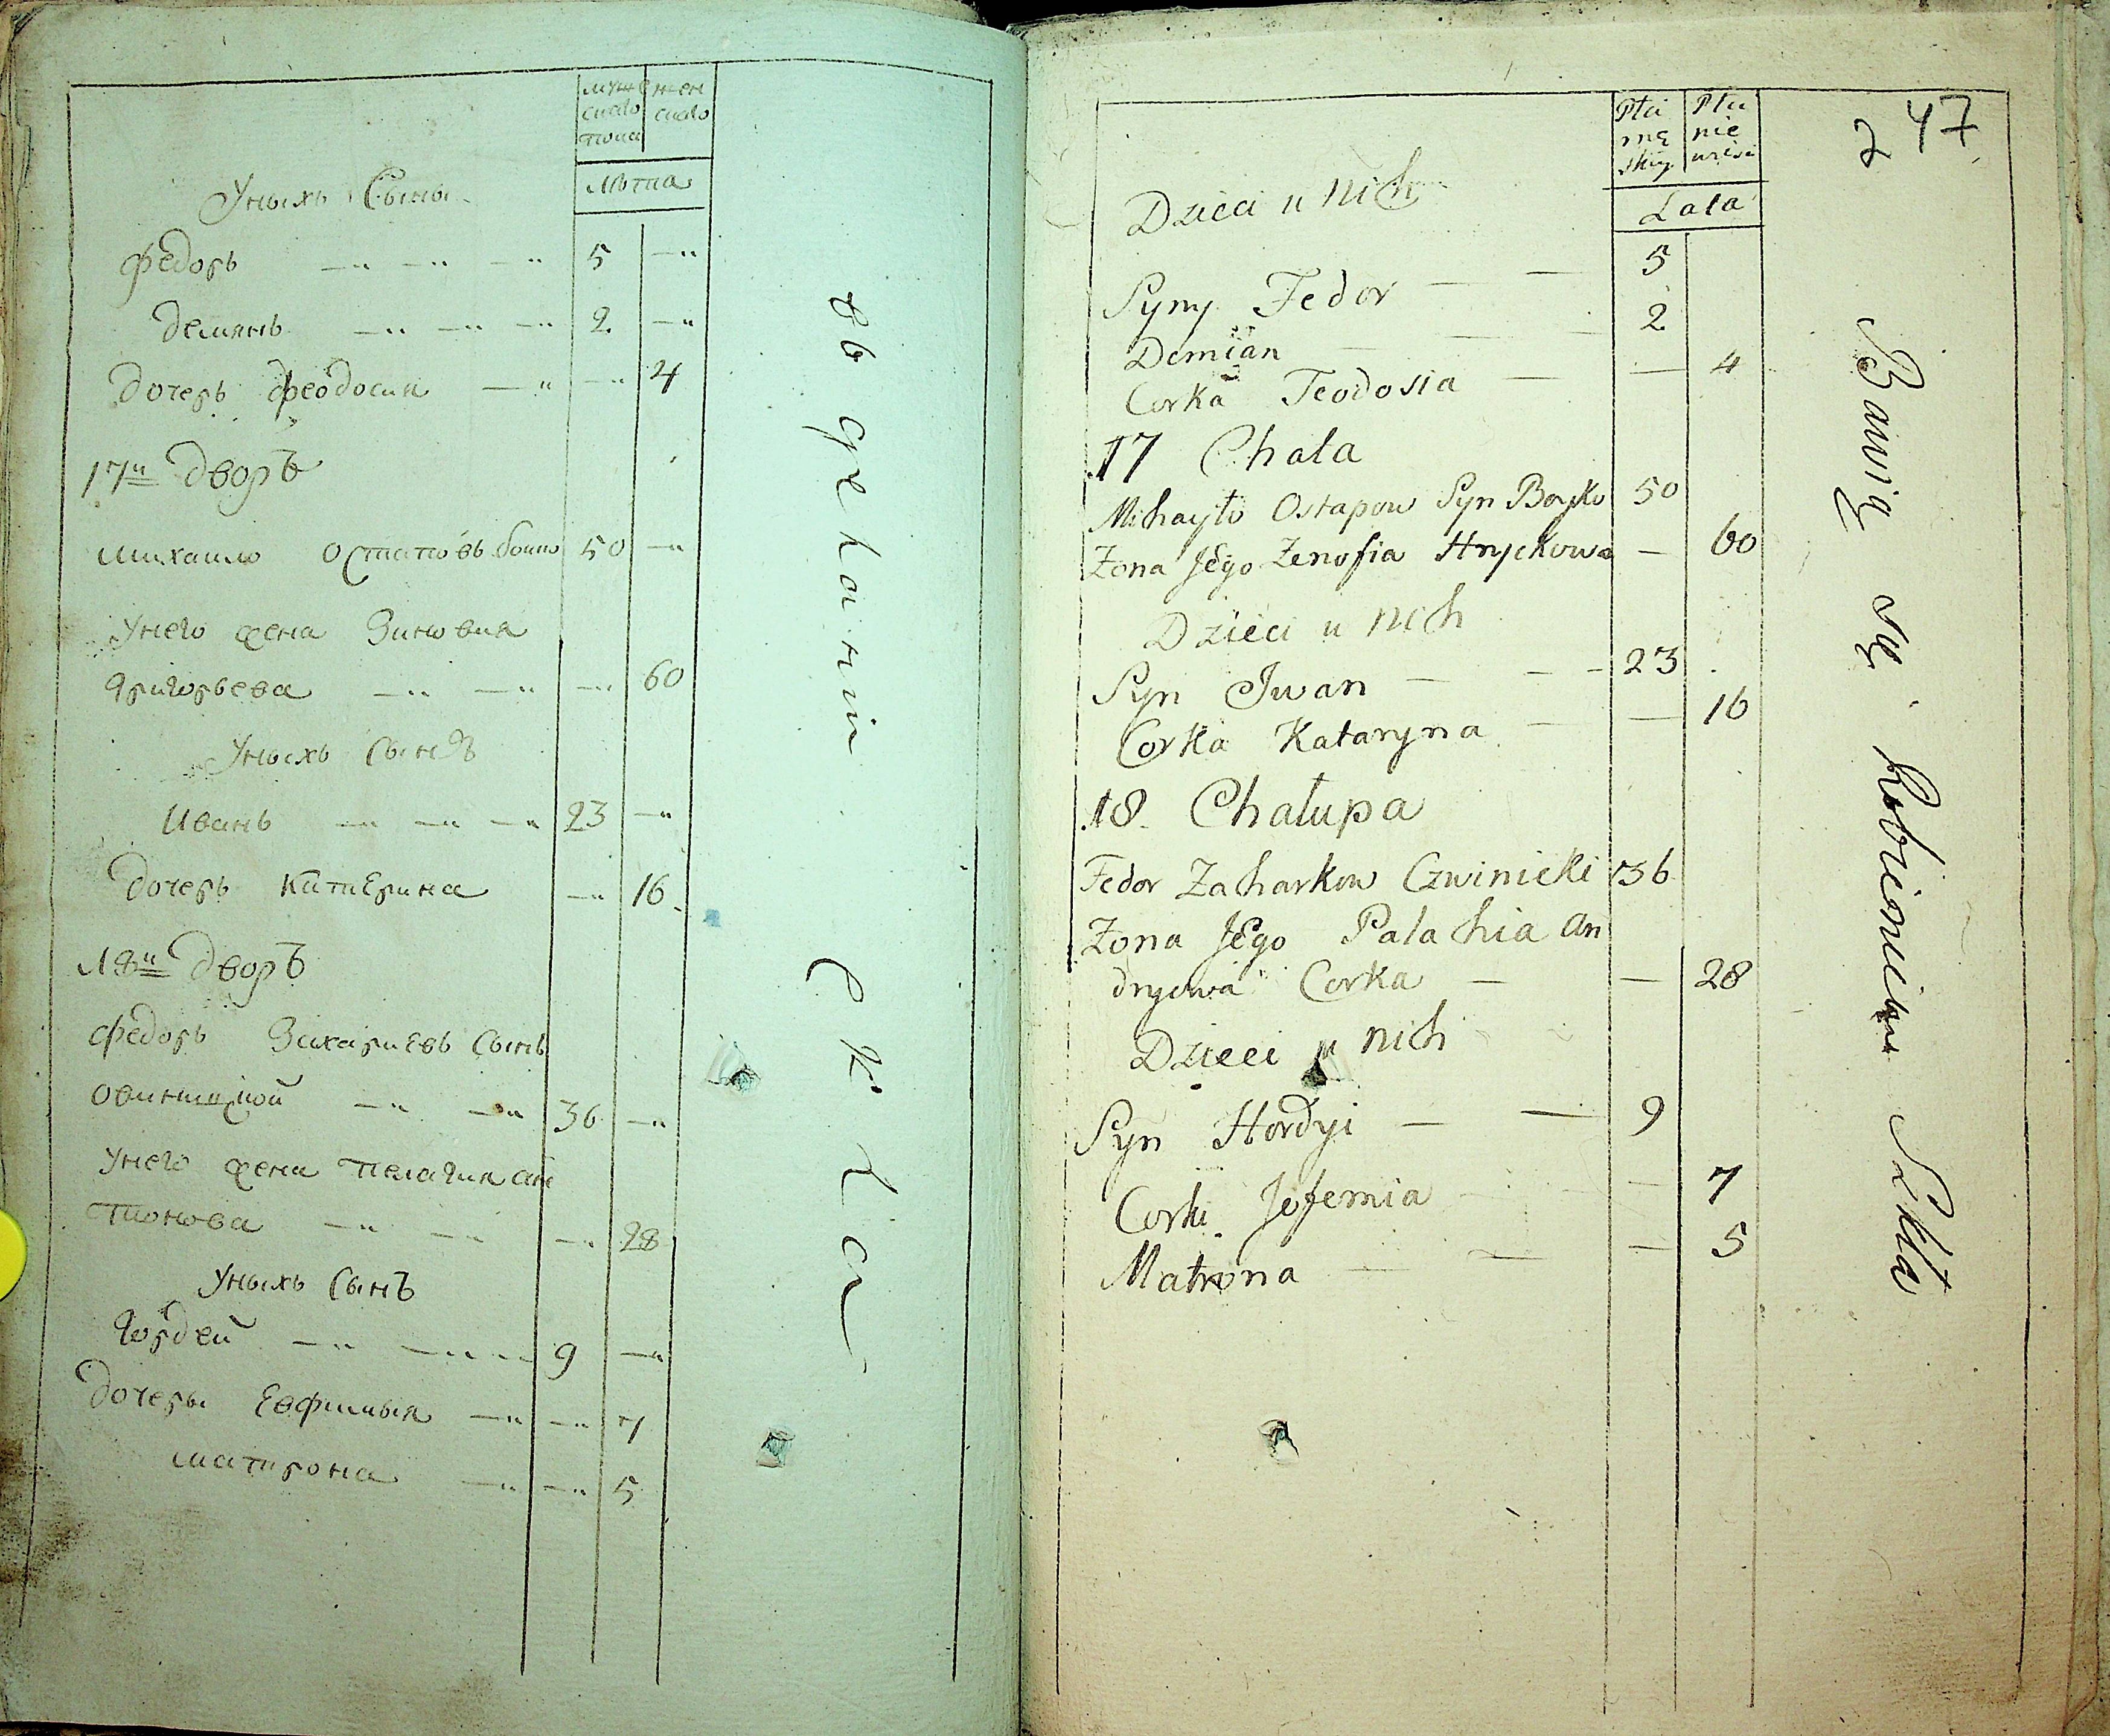 мужс жен
скаго скаго
пола
Лѣта
Уныхъ Сыны
Федоръ 5
Демянъ 2
Дочерь Феодосия 4
17й Дворъ
Михаило Остаповъ Бойко 50
Унего жена Зиновия
Григорьева 60
Уныхъ Сынъ
Иванъ 23
Дочерь Катерина 16
18й Дворъ
Федоръ Захариевъ Сынъ
36
Унего жена Пелагия Ан
тонова 28
Уныхъ Сынъ
Гордей 9
Дочеры Евфимия 7
Матрона 5
47
2
Płci Płci
mę nie
skiej
Lata
Dzieci u nich
Syny Fedor 5
Demian 2
Corka Teodosia 4
17 Chata
Mihayło Ostapow Syn Boyko 50
Zona Jego Zenofia Hryckowa 60
Dzieci u nich
Syn Jwan 23
Corka Kataryna 16
18 Chałupa
Fedor Zacharkow Czwinicki 36
Zona Jego Palahia An
dryowa Corka 28
Dzieci u nich
Syn Hordyi 9
Corki Jefemia 7
Matrona 5
Bawią się Robieniem Szkła